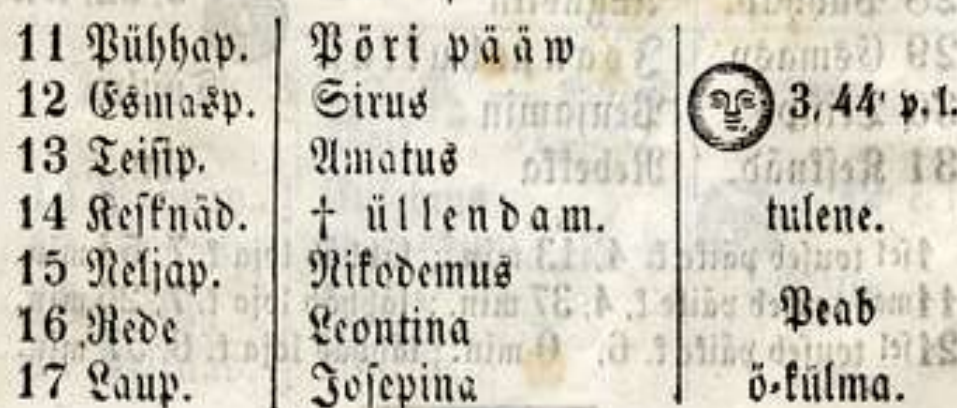 11 Pühhap. Pöri pääw
12 Esmasp. Sirus 3, 44' p.l.
13 Teisip. Amatus
14 Kesknäd. † üllendam. tulene.
15 Neljap. Nikodemus
16 Rede Leontina Peab
17 Laup. Josepina ö-külma.